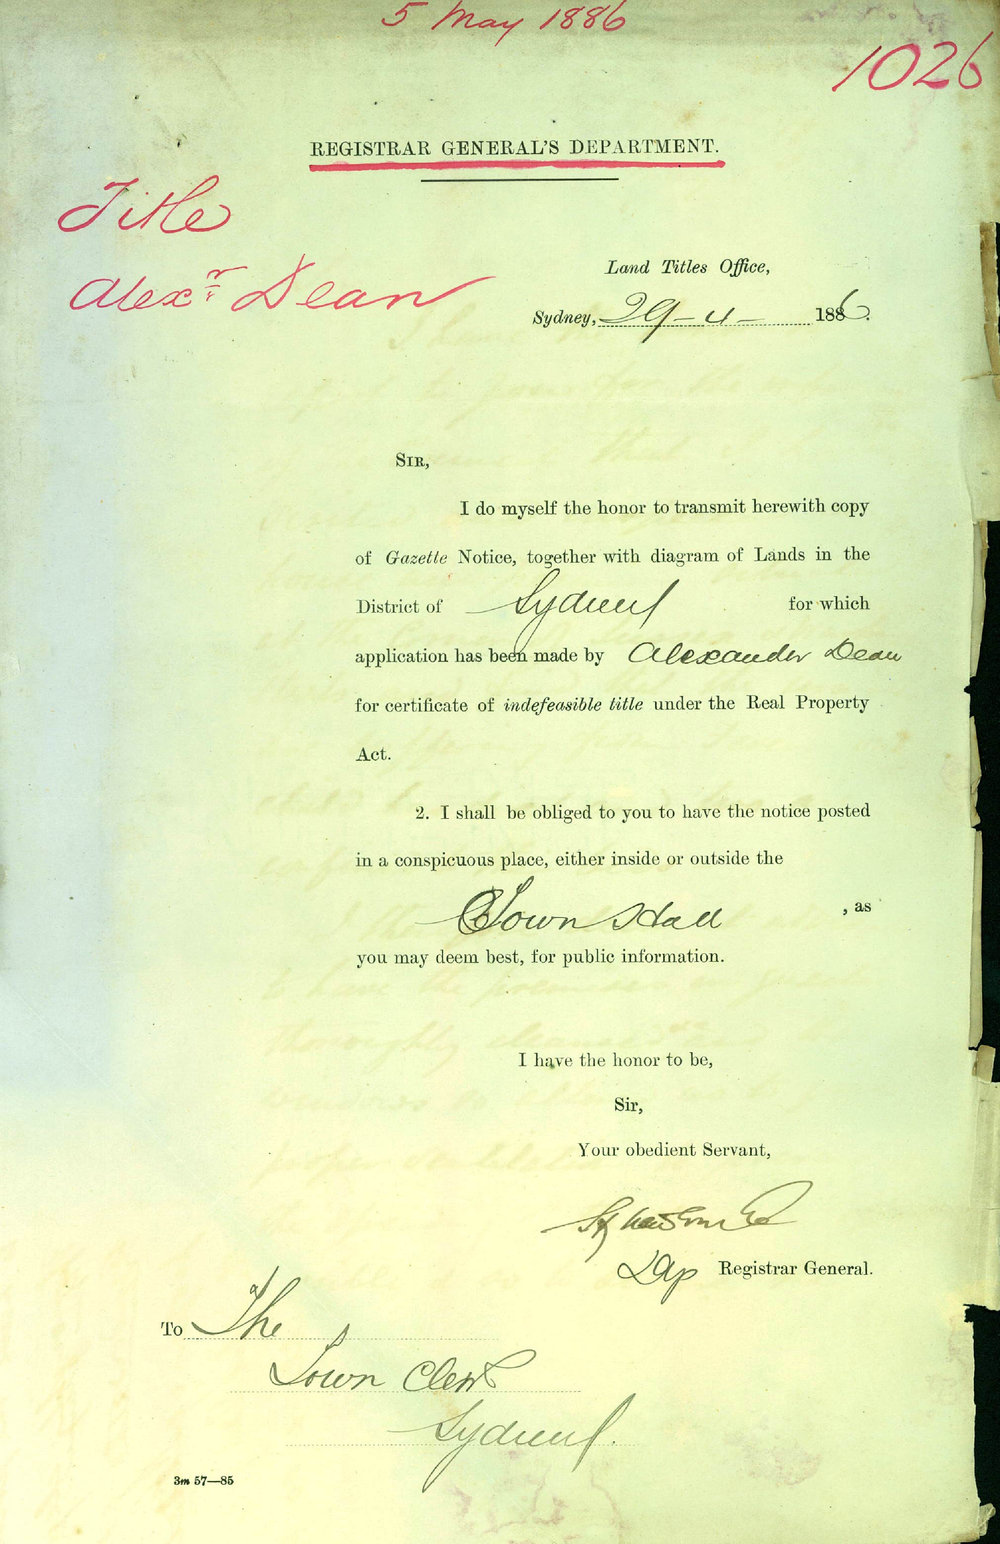 5 May 1886
1026
REGISTRAR GENERAL'S DEPARTMENT.
Title
Alexr Dean
Land Titles Office,
Sydney, 29-4- 1886.
SIR,
I do myself the honor to transmit herewith copy
of Gazette Notice, together with diagram of Lands in the
District of Sydney for which
application has been made by Alexander Dean
for certificate of indefeasible title under the Real Property
Act.
2. I shall be obliged to you to have the notice posted
in a conspicuous place, either inside or outside the
Town Hall , as
you may deem best, for public information.
I have the honor to be,
Sir,
Your obedient Servant,
Dep Registrar General.
To The
Town Clerk
Sydney.
3m 57—85